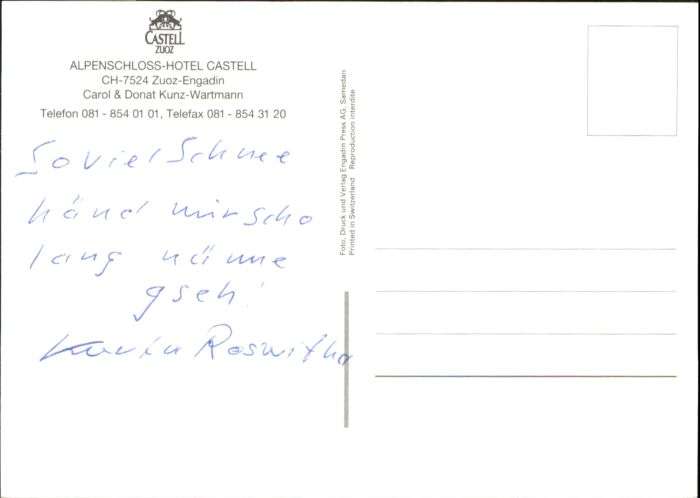 CASTELL
ZUOZ
ALPENSCHLOSS-HOTEL CASTELL
CH-7524 Zuoz-Engadin
Carol & Donat Kunz-Wartmann
Telefon 081 - 854 01 01, Telefax 081 - 854 31 20
Soviel Schnee
händ mir scho
lang nüme
gseh!
Karin Roswitha
Foto, Druck und Verlag Engadin Press AG, Samedan
Printed in Switzerland Reproduction interdite